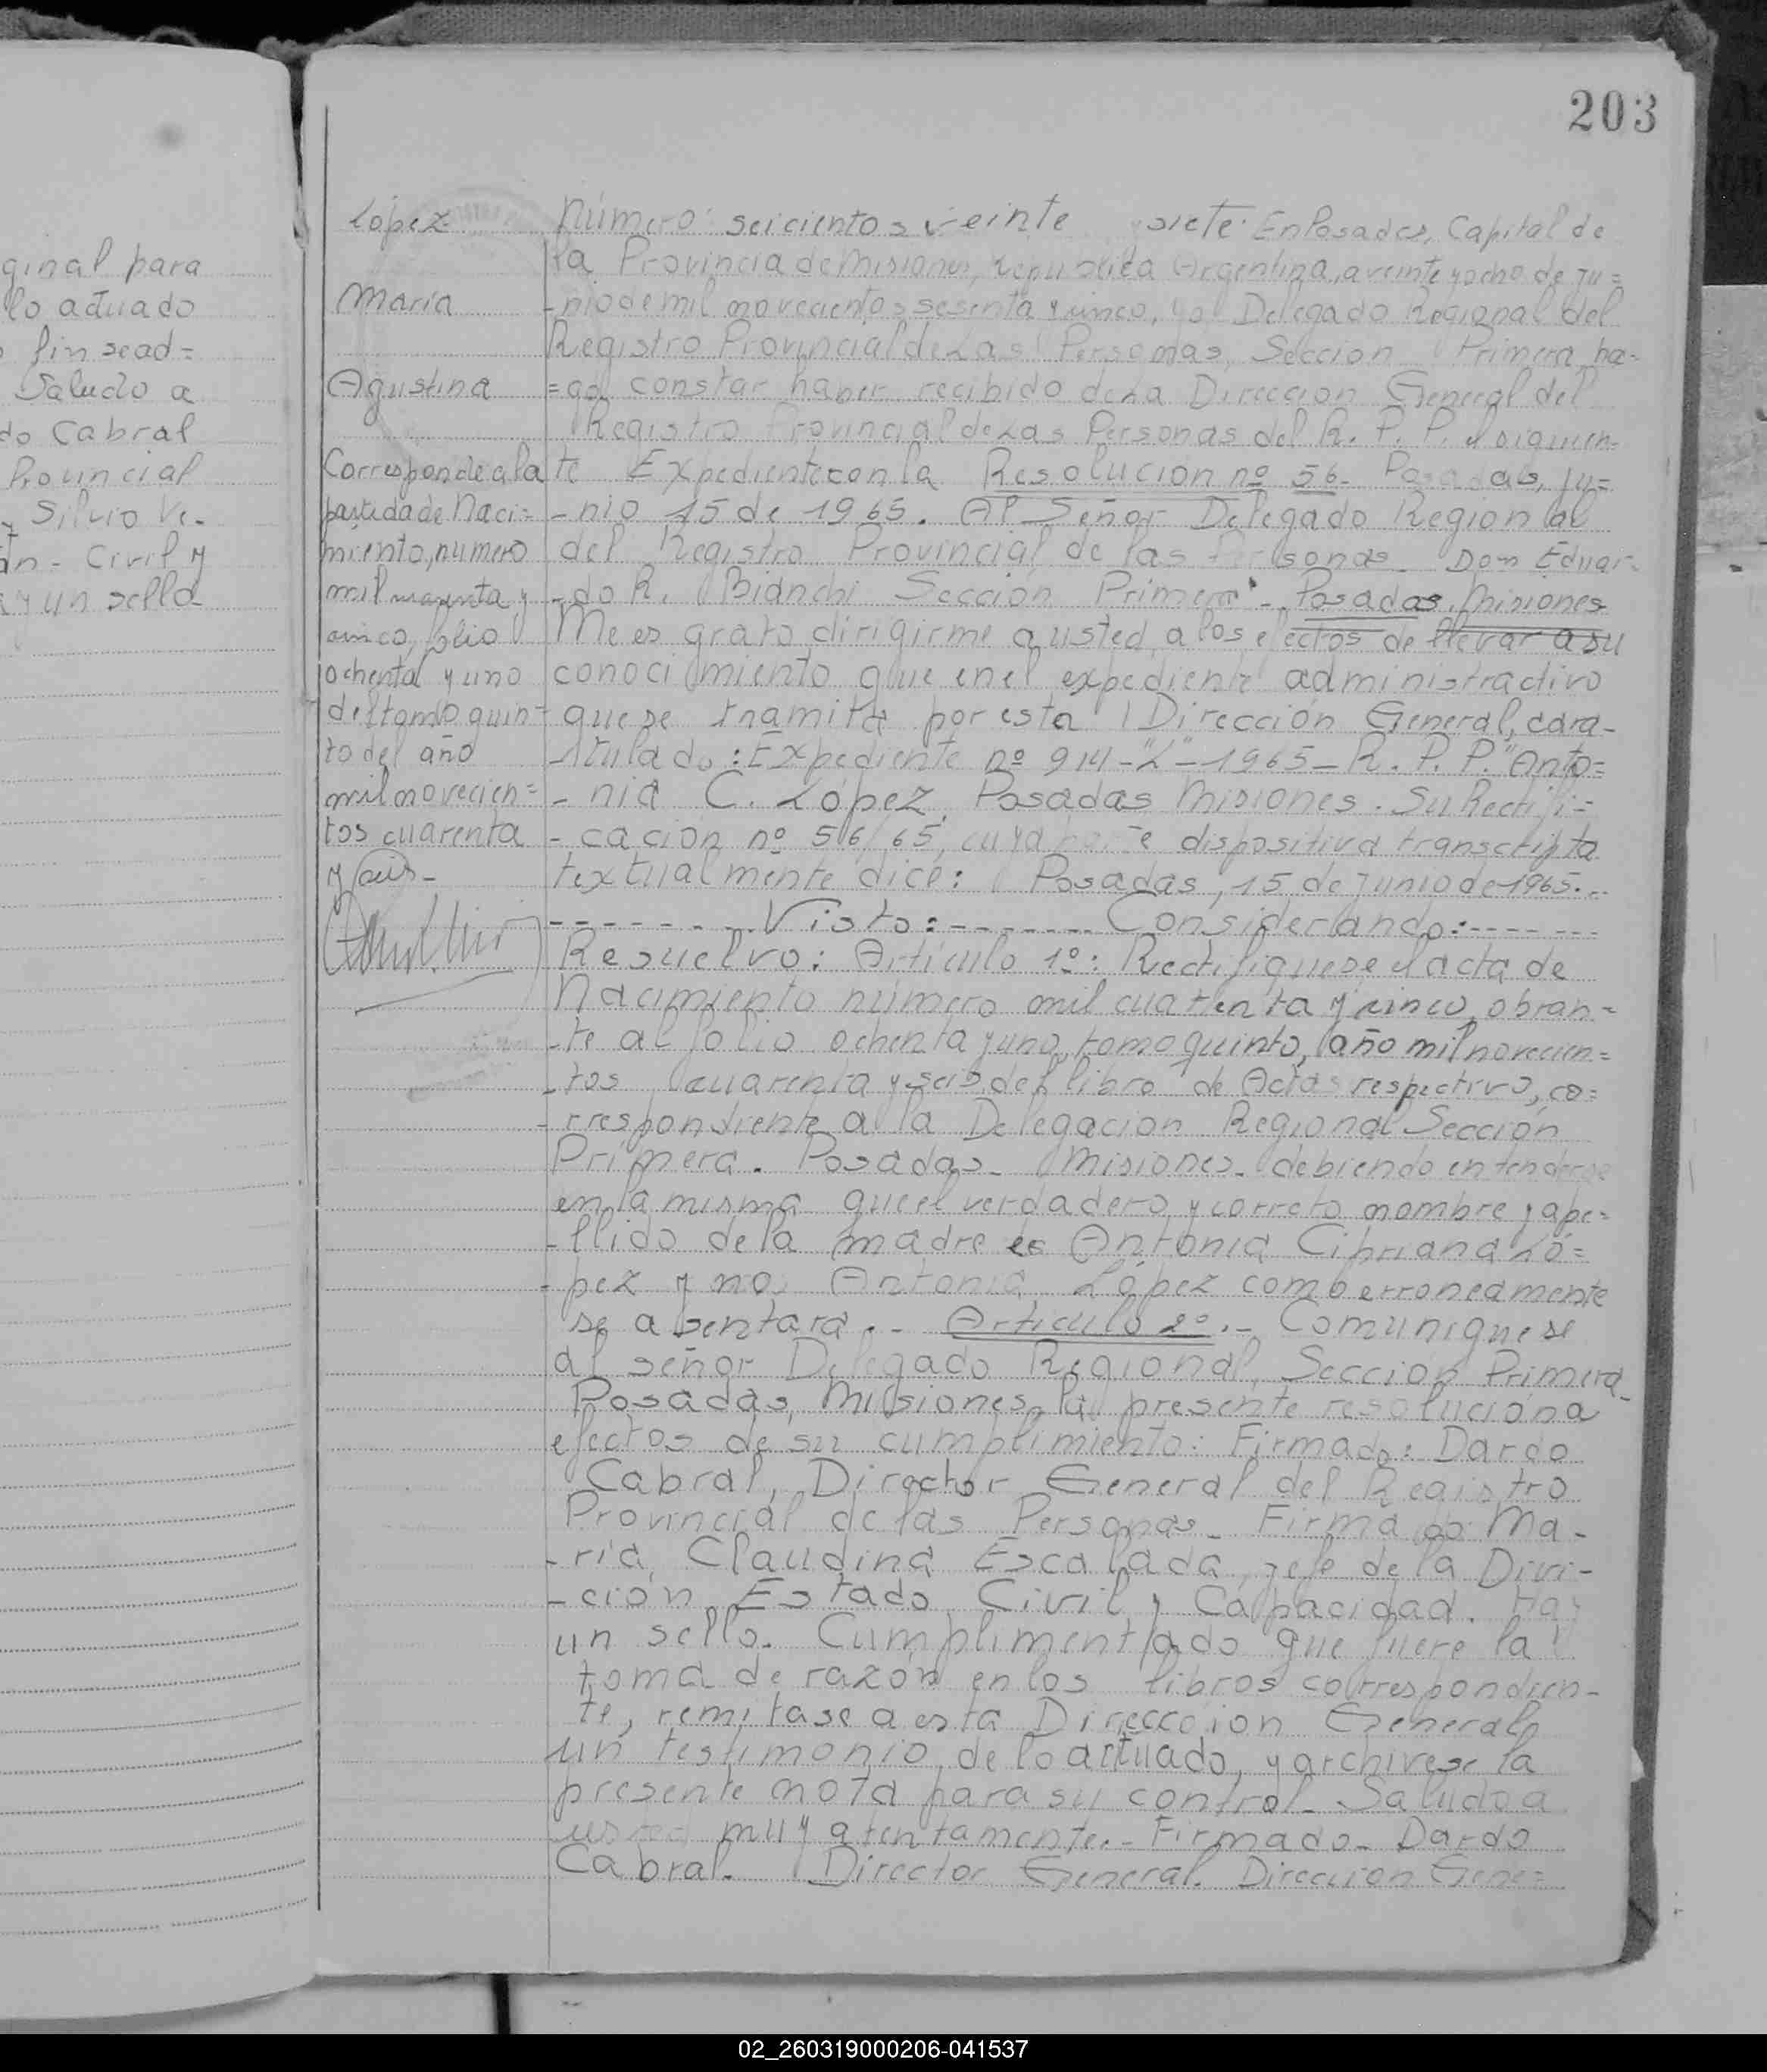 203
ginal para
lo actuado
fin sead=
Saludo a
do Cabral
Provincial
Silvio Ve-
Civil y
y un sello
López
María
Agustina
Corresponde a la
partida de Naci-
miento, número
mil cuarenta y
cinco, folio
ochenta y uno
del tomo quin-
to del año
mil novecien=
tos cuarenta
y seis-
Número: seicientos veinte y siete: En Posadas, Capital de
la Provincia de Misiones, República Argentina, a veinte y ocho de ju=
-nio de mil novecientos sesenta y cinco, yo Delegado Regional del
Registro Provincial de Las Personas, Seccion Primera, ha-
=go constar haber recibido de La Direccion General del
Registro Provincial de Las Personas del R. P. P. el siguien-
te Expediente con la Resolucion nº 56- Posadas, ju=
-nio 15 de 1965. Al Señor Delegado Regional
del Registro Provincial de las Personas- Don Eduar-
-do R. Bianchi Sección Primera- Posadas, Misiones
Me es grato dirigirme a usted, a los efectos de llevar a su
conocimiento que en el expediente administractivo
que se tramita por esta Dirección General, cara-
-tulado: Expediente nº 914-"L"-1965- R. P. P. "Anto=
- nia C. López, Posadas Misiones. Su Rectifi=
- cación nº 56/65, cuya parte dispositiva transcripta
textualmente dice: Posadas, 15 de junio de 1965...
-------- Visto: -------- Considerando: -------
Resuelvo: Artículo 1º: Rectifiquese el acta de
Nacimiento número mil cuarenta y cinco, obran=
-te al folio ochenta y uno, tomo quinto, año mil novecien=
-tos cuarenta y seis, del libro de Actas respectivo, co=
-rrespondiente a la Delegacion Regional Sección
Primera. Posadas- Misiones- debiendo entenderse
en la misma que el verdadero y correcto nombre y ape=
-llido de la madre es Antonia Cipriana Ló=
-pez y no, Antonia López como erroneamente
se a sentara.- Articulo 2º.- Comuniquese
al señor Delegado Regional, Sección Primera-
Posadas, Misiones, la presente resolución a
efectos de su cumplimiento: Firmado: Dardo
Cabral, Director General del Registro
Provincial de las Personas- Firmado: Ma-
-ria Claudina Escalada, jefe de la Divi-
-ción Estado Civil y Capacidad. Hay
un sello. Cumplimentado que fuere la
toma de razón en los libros correspondien-
te, remitase a esta Direccoion General,
un testimonio de lo actuado, y archivese la
presente nota para su control- Saludo a
usted muy atentamente.- Firmado- Dardo
Cabral. Director General. Direccion Gene=
02_260319000206-041537